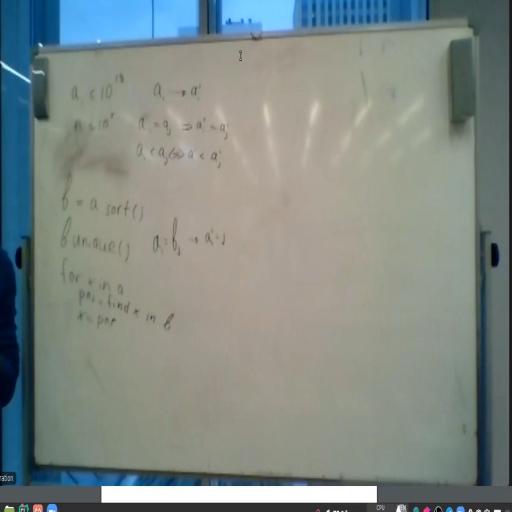 a_i < 10^18   a_i → a_i'
n ≤ 10^5   a_i = a_j ⇒ a_i' = a_j'
a_i < a_j ⇔ a_i' < a_j'
b = a sort()
b unique()   a_i = b_j → a_i' = j
for x in a
pos = find x in b
x = pos